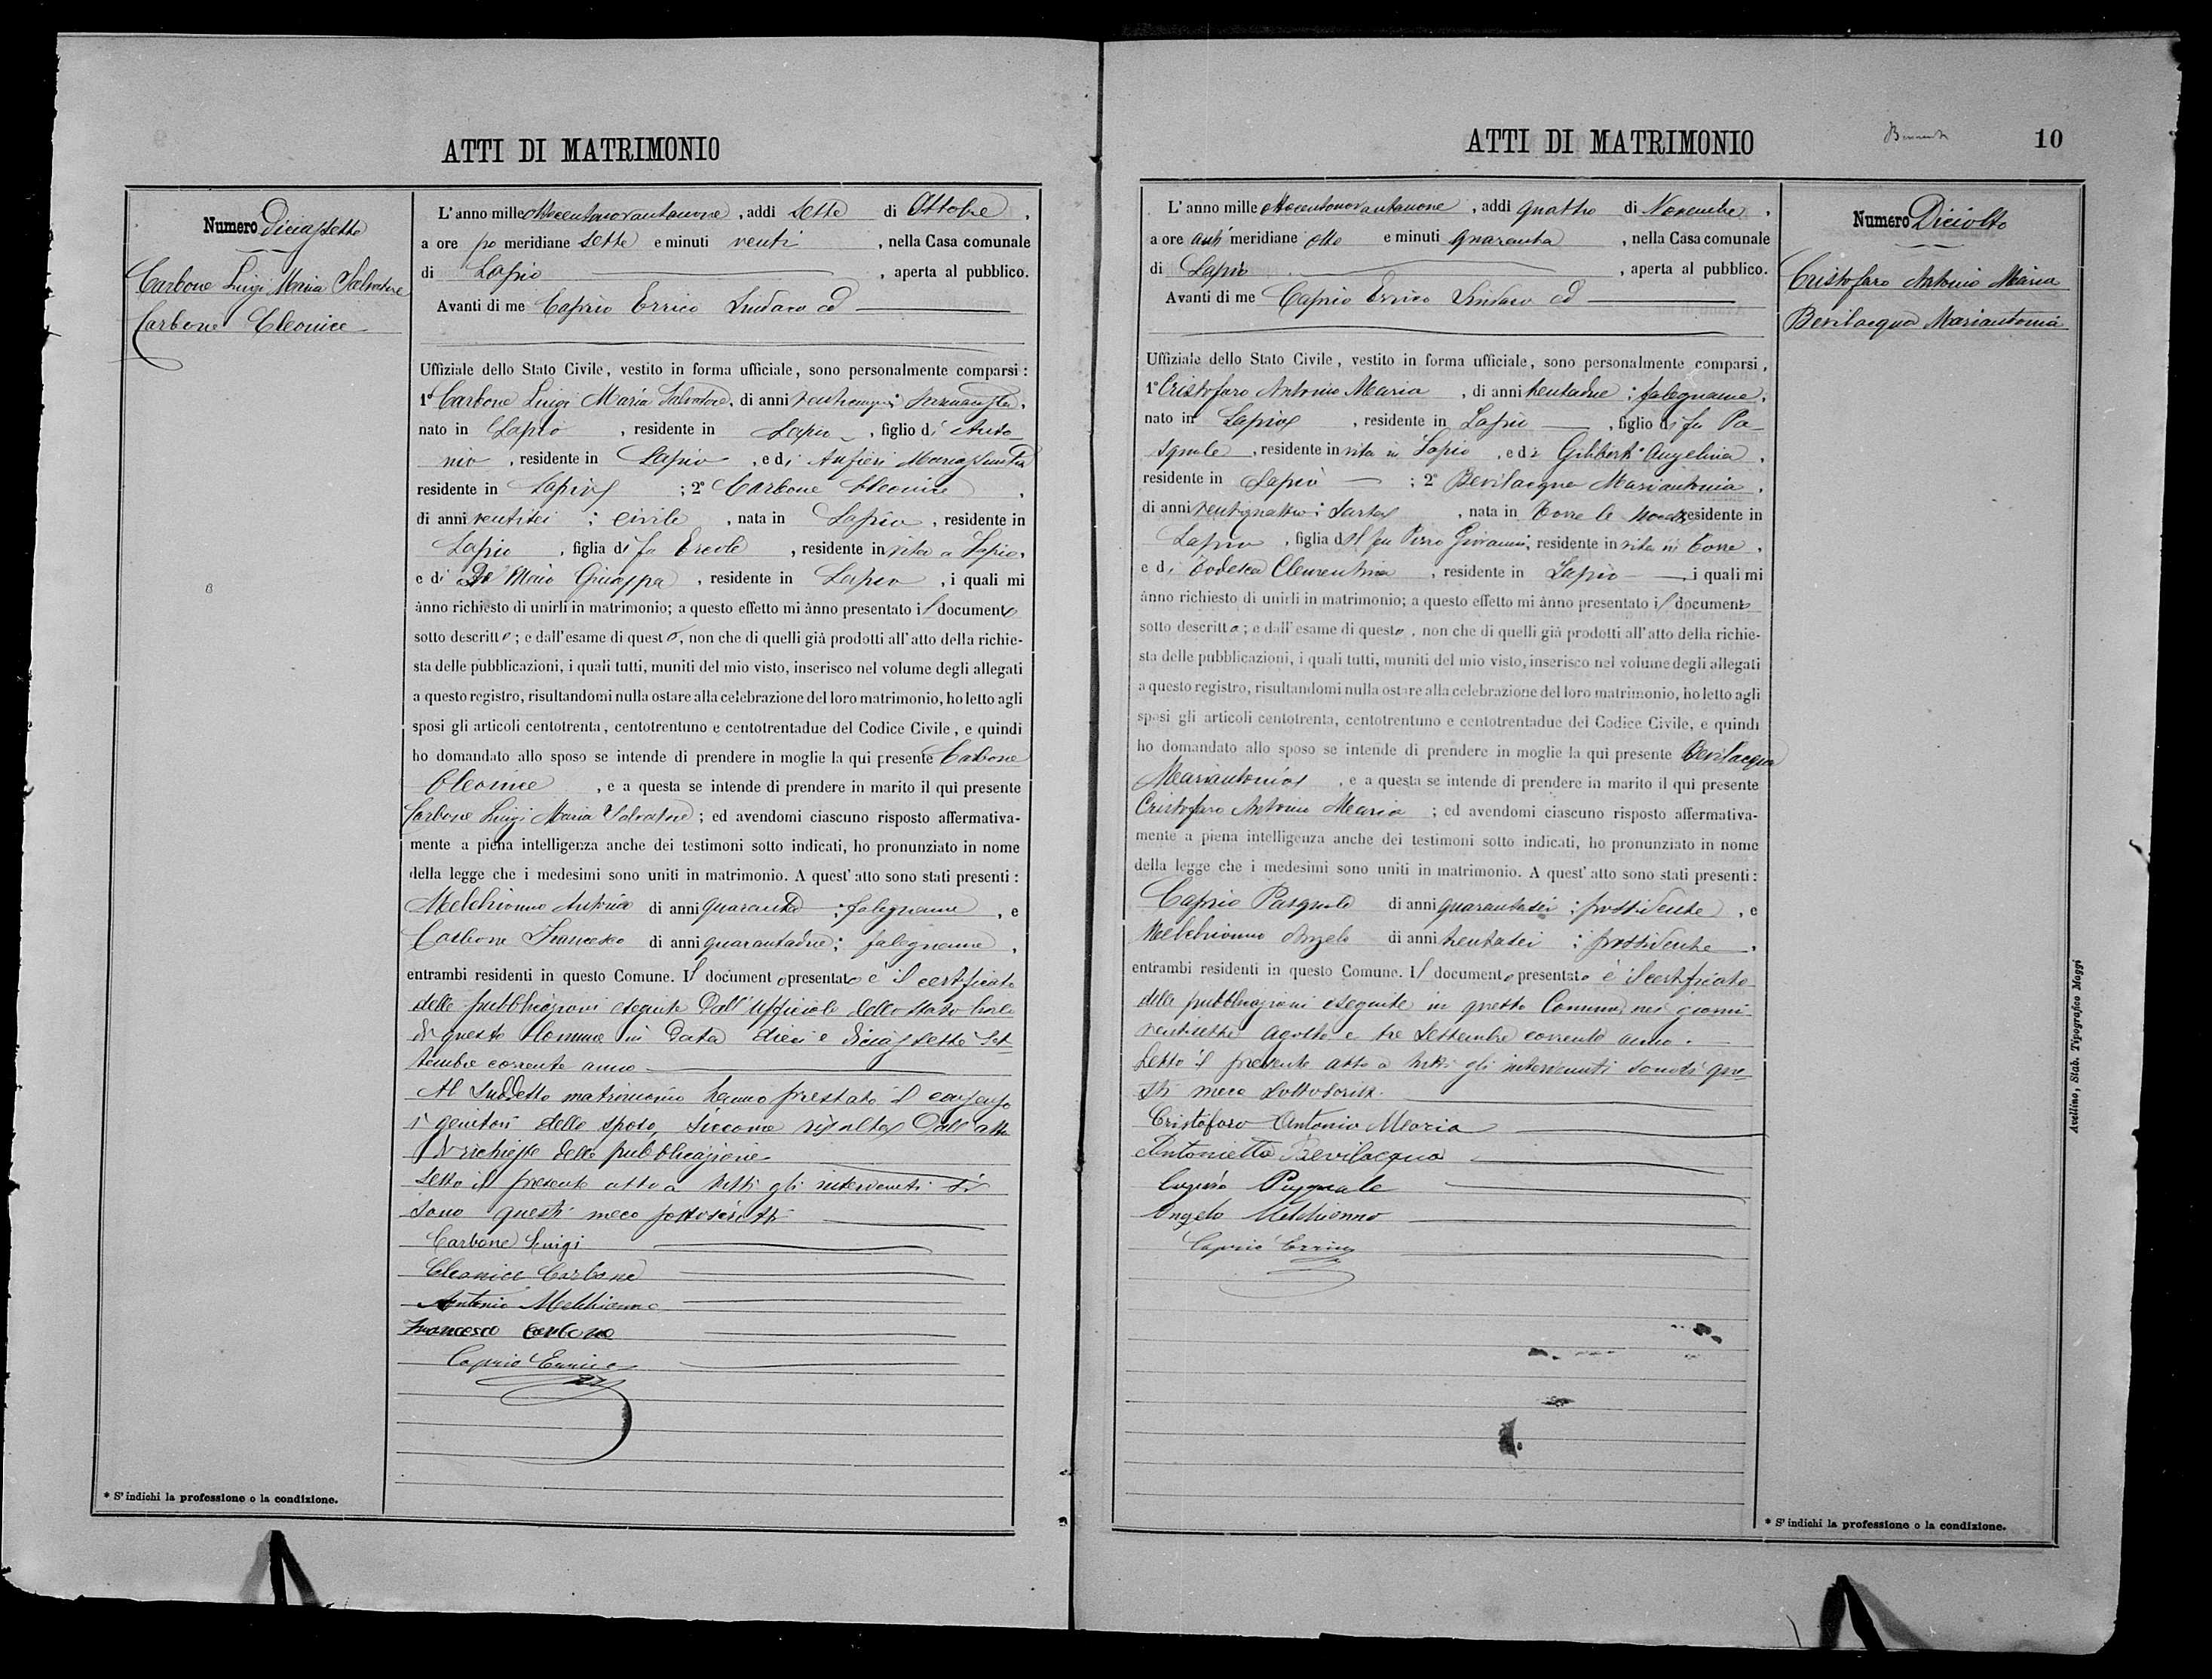 ATTI DI MATRIMONIO
Numero Diciassette
Carbone Luigi Maria Salvatore
Carbone Cleonice
L'anno mille ottocentonovantanove, addi sette di Ottobre,
a ore po meridiane sette e minuti venti, nella Casa comunale
di Lapio, aperta al pubblico.
Avanti di me Caprio Errico Sindaco ed
Uffiziale dello Stato Civile, vestito in forma ufficiale, sono personalmente comparsi:
1° Carbone Luigi Maria Salvatore, di anni
nato in Lapio, residente in Lapio, figlio di Anto-
nio, residente in Lapio, e di Anfieri
residente in Lapio; 2° Carbone Cleonice,
di anni ventisei; civile, nata in Lapio, residente in
Lapio, figlia di fu Ercole, residente in vita a Lapio,
e di De Maio Giuseppa, residente in Lapio, i quali mi
ànno richiesto di unirli in matrimonio; a questo effetto mi ànno presentato il documento
sotto descritto; e dall'esame di questo, non che di quelli già prodotti all'atto della richie-
sta delle pubblicazioni, i quali tutti, muniti del mio visto, inserisco nel volume degli allegati
a questo registro, risultandomi nulla ostare alla celebrazione del loro matrimonio, ho letto agli
sposi gli articoli centotrenta, centotrentuno e centotrentadue del Codice Civile, e quindi
ho domandato allo sposo se intende di prendere in moglie la qui presente Carbone
Cleonice, e a questa se intende di prendere in marito il qui presente
Carbone Luigi Maria Salvatore; ed avendomi ciascuno risposto affermativa-
mente a piena intelligenza anche dei testimoni sotto indicati, ho pronunziato in nome
della legge che i medesimi sono uniti in matrimonio. A quest'atto sono stati presenti:
Melchionno Antonio di anni quaranta; falegname, e
Carbone Francesco di anni quarantadue; falegname,
entrambi residenti in questo Comune. Il documento presentato è il certificato
delle pubblicazioni eseguite dall'Ufficiale dello stato Civile
di questo Comune in data dieci e diciassette Set-
tembre corrente anno
Al suddetto matrimonio hanno prestato il consenso
i genitori dello sposo, siccome risulta dall'atto
di richiesta della pubblicazione
Letto il presente atto a tutti gli intervenuti si
sono questi meco sottoscritti
Carbone Luigi
Cleonice Carbone
Antonio Melchionno
Francesco Carbone
Caprio Errico
* S'indichi la professione o la condizione.
ATTI DI MATRIMONIO
10
L'anno mille ottocentonovantanove, addi quattro di Novembre,
a ore anti meridiane otto e minuti quaranta, nella Casa comunale
di Lapio, aperta al pubblico.
Avanti di me Caprio Errico Sindaco ed
Uffiziale dello Stato Civile, vestito in forma ufficiale, sono personalmente comparsi,
1° Cristofaro Antonio Maria, di anni trentadue; falegname,
nato in Lapio, residente in Lapio, figlio di fu Pa-
squale, residente in vita in Lapio, e di Giliberti Angelina,
residente in Lapio; 2° Bevilacqua Mariantonia,
di anni ventiquattro; sarta, nata in Torre le Nocelle, residente in
Lapio, figlia del fu Pirro Giovanni, residente in vita in Torre,
e di Todesca Clementina, residente in Lapio, i quali mi
ànno richiesto di unirli in matrimonio; a questo effetto mi ànno presentato il documento
sotto descritto; e dall'esame di questo, non che di quelli già prodotti all'atto della richie-
sta delle pubblicazioni, i quali tutti, muniti del mio visto, inserisco nel volume degli allegati
a questo registro, risultandomi nulla ostare alla celebrazione del loro matrimonio, ho letto agli
sposi gli articoli centotrenta, centotrentuno e centotrentadue del Codice Civile, e quindi
ho domandato allo sposo se intende di prendere in moglie la qui presente Bevilacqua
Mariantonia, e a questa se intende di prendere in marito il qui presente
Cristofaro Antonio Maria; ed avendomi ciascuno risposto affermativa-
mente a piena intelligenza anche dei testimoni sotto indicati, ho pronunziato in nome
della legge che i medesimi sono uniti in matrimonio. A quest'atto sono stati presenti:
Caprio Pasquale di anni quarantasei; possidente, e
Melchionno Angelo di anni trentasei; possidente,
entrambi residenti in questo Comune. Il documento presentato è il certificato
delle pubblicazioni eseguite in questo Comune nei giorni
ventisette agosto e tre Settembre corrente anno.
Letto il presente atto a tutti gli intervenuti sonosi que-
sti meco sottoscritti.
Cristofaro Antonio Maria
Antonietta Bevilacqua
Caprio Pasquale
Angelo Melchionno
Caprio Errico
Numero Diciotto
Cristofaro Antonio Maria
Bevilacqua Mariantonia
* S'indichi la professione o la condizione.
Avellino, Stab. Tipografico Maggi